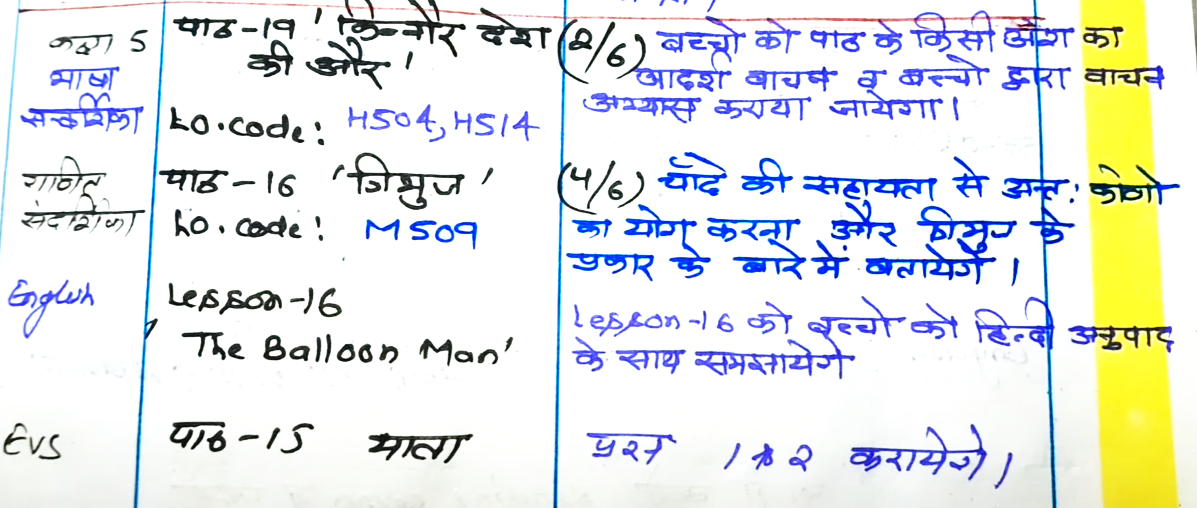 कक्षा 5 पाठ-19 'किन्नौर देश (2/6) बच्चो को पाठ के किसी अंश का
भाषा की और' आदर्श वाचन व बच्चो द्वारा वाचन
सन्दर्शिका Lo.code: H504, H514 अभ्यास कराया जायेगा।
गणित पाठ-16 'त्रिभुज' (4/6) चाँदे की सहायता से अन्त: कोणो
संदर्शिका Lo.code: M509 का योग करना और त्रिभुज के
प्रकार के बारे में बतायेगें।
English Lesson-16 Lesson-16 को बच्चो को हिन्दी अनुवाद
'The Balloon Man' के साथ समझायेगे
EVS पाठ-15 प्रश्न 1 to 2 करायेगे।